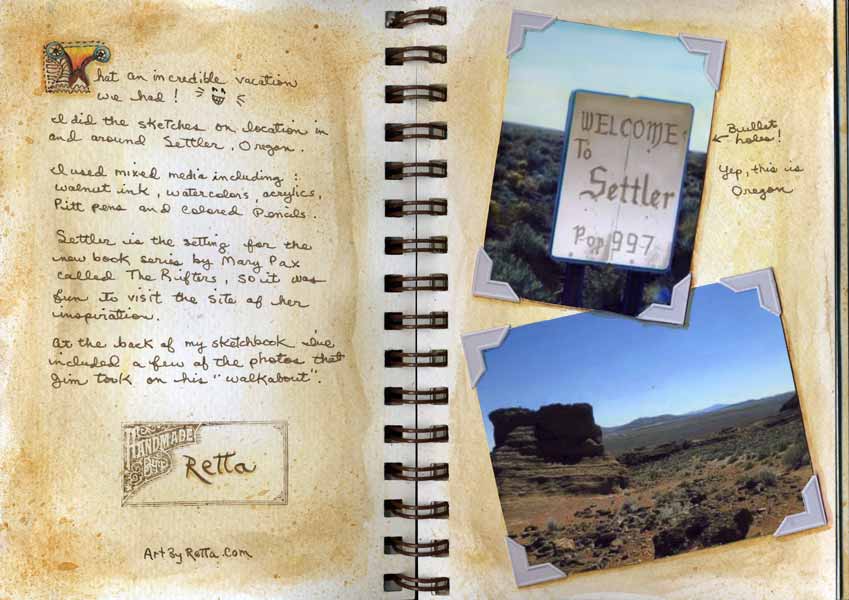 What an incredible vacation
we had!
I did the sketches on location in
and around Settler, Oregon.
I used mixed media including:
walnut ink, watercolors, acrylics,
Pitt pens and colored pencils.
Settler is the setting for the
new book series by Mary Pax
called The Rifters, so it was
fun to visit the site of her
inspiration.
At the back of my sketchbook I've
included a few of the photos that
Jim took on his "walkabout".
HANDMADE
BY
Retta
ArtByRetta.Com
WELCOME
To
Settler
Pop 997
Bullet
holes!
Yep, this is
Oregon